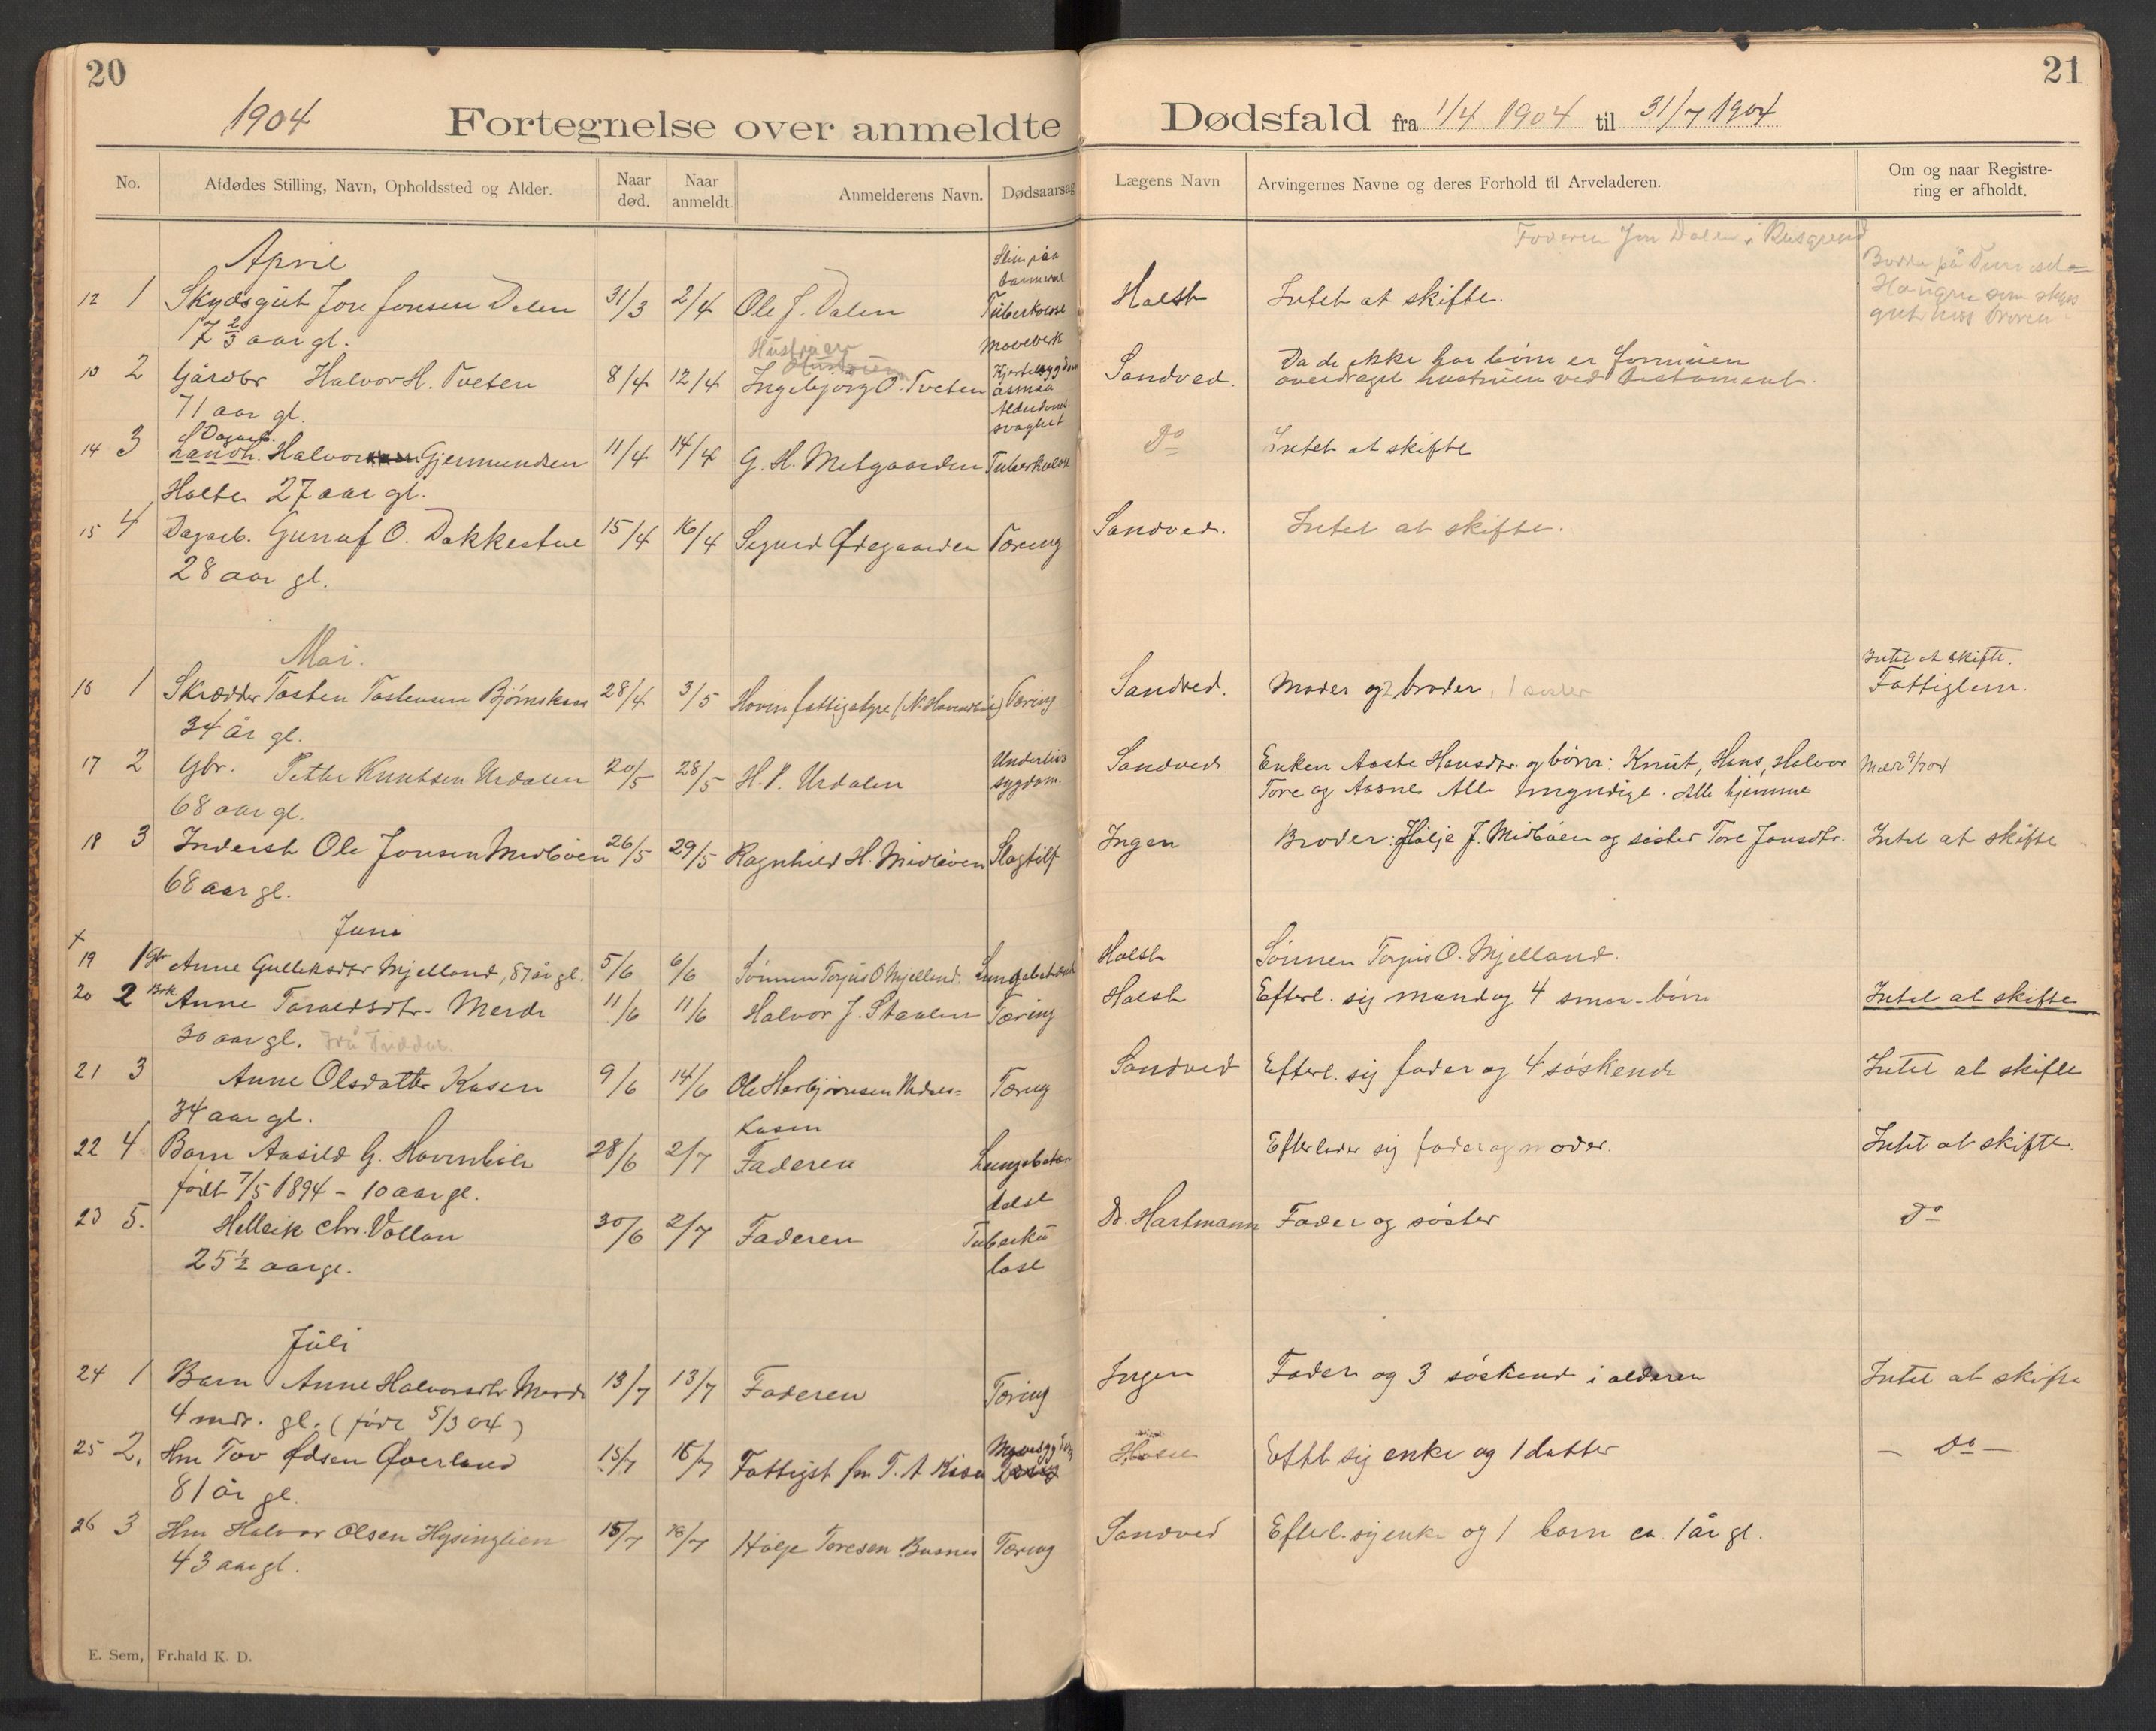 20
1904
Fortegnelse over anmeldte
No.
Afdødes Stilling, Navn, Opholdssted og Alder.
Naar død.
Naar anmeldt
Anmelderens Navn.
Dødsaarsag
April
12 1 Skydsgut Jore Jonsen Dalen 31/3 2/4 Ole J. Dalen Tuberkolose
17 2/3 aar gl.
Maveverk
Hustruen
13 2 Gårdbr Halvor H. Tveten 8/4 12/4 Ingebjørg O. Tveten Hjertesygdom
asmaa
71 aar gl.
Alderdoms
svaghet
Dagarb.
14 3 Landh. Halvor Gjermundsen 11/4 14/4 G. H. Metgaarden Tuberkulose
Holte 27 aar gl.
15 4 Dagarb. Gunuf O. Dakkestue 15/4 16/4 Sigurd Ødegaarden Tæring
28 aar gl.
Mai.
16 1 Skrædder Tosten Tostensen Bjørnskaas 28/4 3/5 Hovin fattigstyre Tæring
34 år gl.
17 2 Gbr. Petter Knutsen Urdalen 20/5 28/5 H. P. Urdalen Underlivs
sygdom.
68 aar gl.
18 3 Inderst Ole Jonsen Midbøen 26/5 29/5 Ragnhild H. Midbøen Slagtilf
68 aar gl.
Juni
x
19 1 Gbr Anne Gulleksdtr Mjelland, 87 år gl. 5/6 6/6 Sønnen Torjus O Mjelland. Lungebet
20 2 Brk Anne Taraldsdtr. Merde 11/6 11/6 Halvor J. Staalen Tæring
30 aar gl.
21 3 Anne Olsdatter Kasen 9/6 14/6 Ole Herbjørnsen Tæring
34 aar gl.
kasen
22 4 Barn Aasild G. Hovinbøle 28/6 2/7 Faderen Lungebetæn
født 7/5 1894 - 10 aar gl.
delse
23 5. Helleik Chr. Vollan 30/6 2/7 Faderen Tuberku
25 1/2 aar gl.
lose
Juli
24 1 Barn Anne Halvorsdtr Merde 13/7 13/7 Faderen Tæring
4 mdr. gl. (født 5/3 04)
25 2. Hm Tov Ødsen Øverland 15/7 15/7 Fattigst fm T. A Kasa Mavesygdom
81 år gl.
26 3 Hm Halvor Olsen Hysinglien 15/7 16/7 Hølje Toresen Busnes Tæring
43 aar gl.
E. Sem, Fr.hald K. D.
21
Dødsfald fra 1/4 1904 til 31/7 1904
Lægens Navn
Arvingernes Navne og deres Forhold til Arveladeren.
Om og naar Registre-
ring er afholdt.
Faderen Jon Dalen i Rusgrend
Holst Intet at skifte.
Sandved. Da de ikke har børn er formuen
overdraget hustruen ved testament.
Do Intet at skifte
Sandved. Intet at skifte.
Intet at skifte.
Sandved. Moder og 2 brødre, 1 søster Fattiglem.
Sandved Enken Aaste Hansdtr og børn: Knut, Hans, Halvor
Tore og Aasne Alle myndige. Alle hjemme
Ingen Broder: Hølje J. Midbøen og søster Tore Jonsdtr. Intet at skifte
Holst Sønnen Torjus O. Mjelland.
Holst Efterl. sig mand og 4 smaa-børn Intet at skifte
Sandved Efterl. sig fader og 4 søskende Intet at skifte
Efterlader sig fader og moder. Intet at skifte.
Dr. Hartmann Fader og søster Do
Ingen Fader og 3 søskende i alderen Intet at skifte
Holst Eftl sig enke og 1 datter — Do —
Sandved Efterl. sig enke og 1 barn ca. 1 år gl.